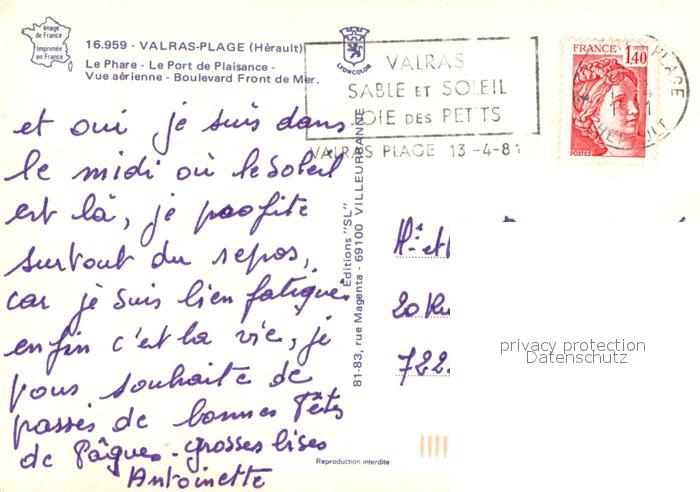 Image
de France
Imprimée
en France
16.959 - VALRAS-PLAGE (Hérault)
Le Phare - Le Port de Plaisance -
Vue aérienne - Boulevard Front de Mer.
LYONCOLOR
VALRAS
SABLE ET SOLEIL
JOIE DES PETITS
VALRAS PLAGE 13-4-81
FRANCE 1,40
POSTES
PLAGE
HERAULT
et oui je suis dans
le midi où le soleil
est là, je profite
surtout du repos,
car je suis bien fatiguée
enfin c'est la vie, je
vous souhaite de
passés de bonnes Fêtes
de Pâques. grosses bises
Antoinette
Editions "SL"
81-83, rue Magenta - 69100 VILLEURBANNE
Mr et
20 Ru
722
privacy protection
Datenschutz
Reproduction interdite